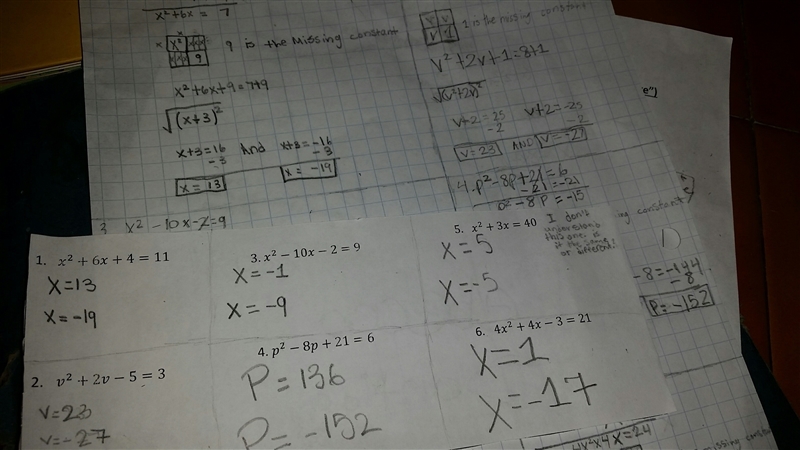 x²+6x = 7
x² xxx xxx 9
9 is the missing constant
x²+6x+9=7+9
√(x+3)²
x+3=16 And x+3=-16
-3 -3
x = 13 x = -19
3. x² -10x-2=9
1 is the missing constant
v²+2v+1=8+1
v+2=25 v+2=-25
-2 -2
v=23 AND v=-27
4. p²-8p+21=6
-21=-21
p²-8p=-15
-8=-144
-8
P=-152
1. x² + 6x + 4 = 11
x=13
x=-19
2. v² + 2v − 5 = 3
v=23
v=-27
3. x² − 10x − 2 = 9
x=-1
x=-9
4. p² − 8p + 21 = 6
P=136
P=-152
5. x² + 3x = 40
x=5
x=-5
I don't
understand
this one. is
it the same
or different?
6. 4x² + 4x − 3 = 21
x=1
x=-17
4x²4x=24
missing